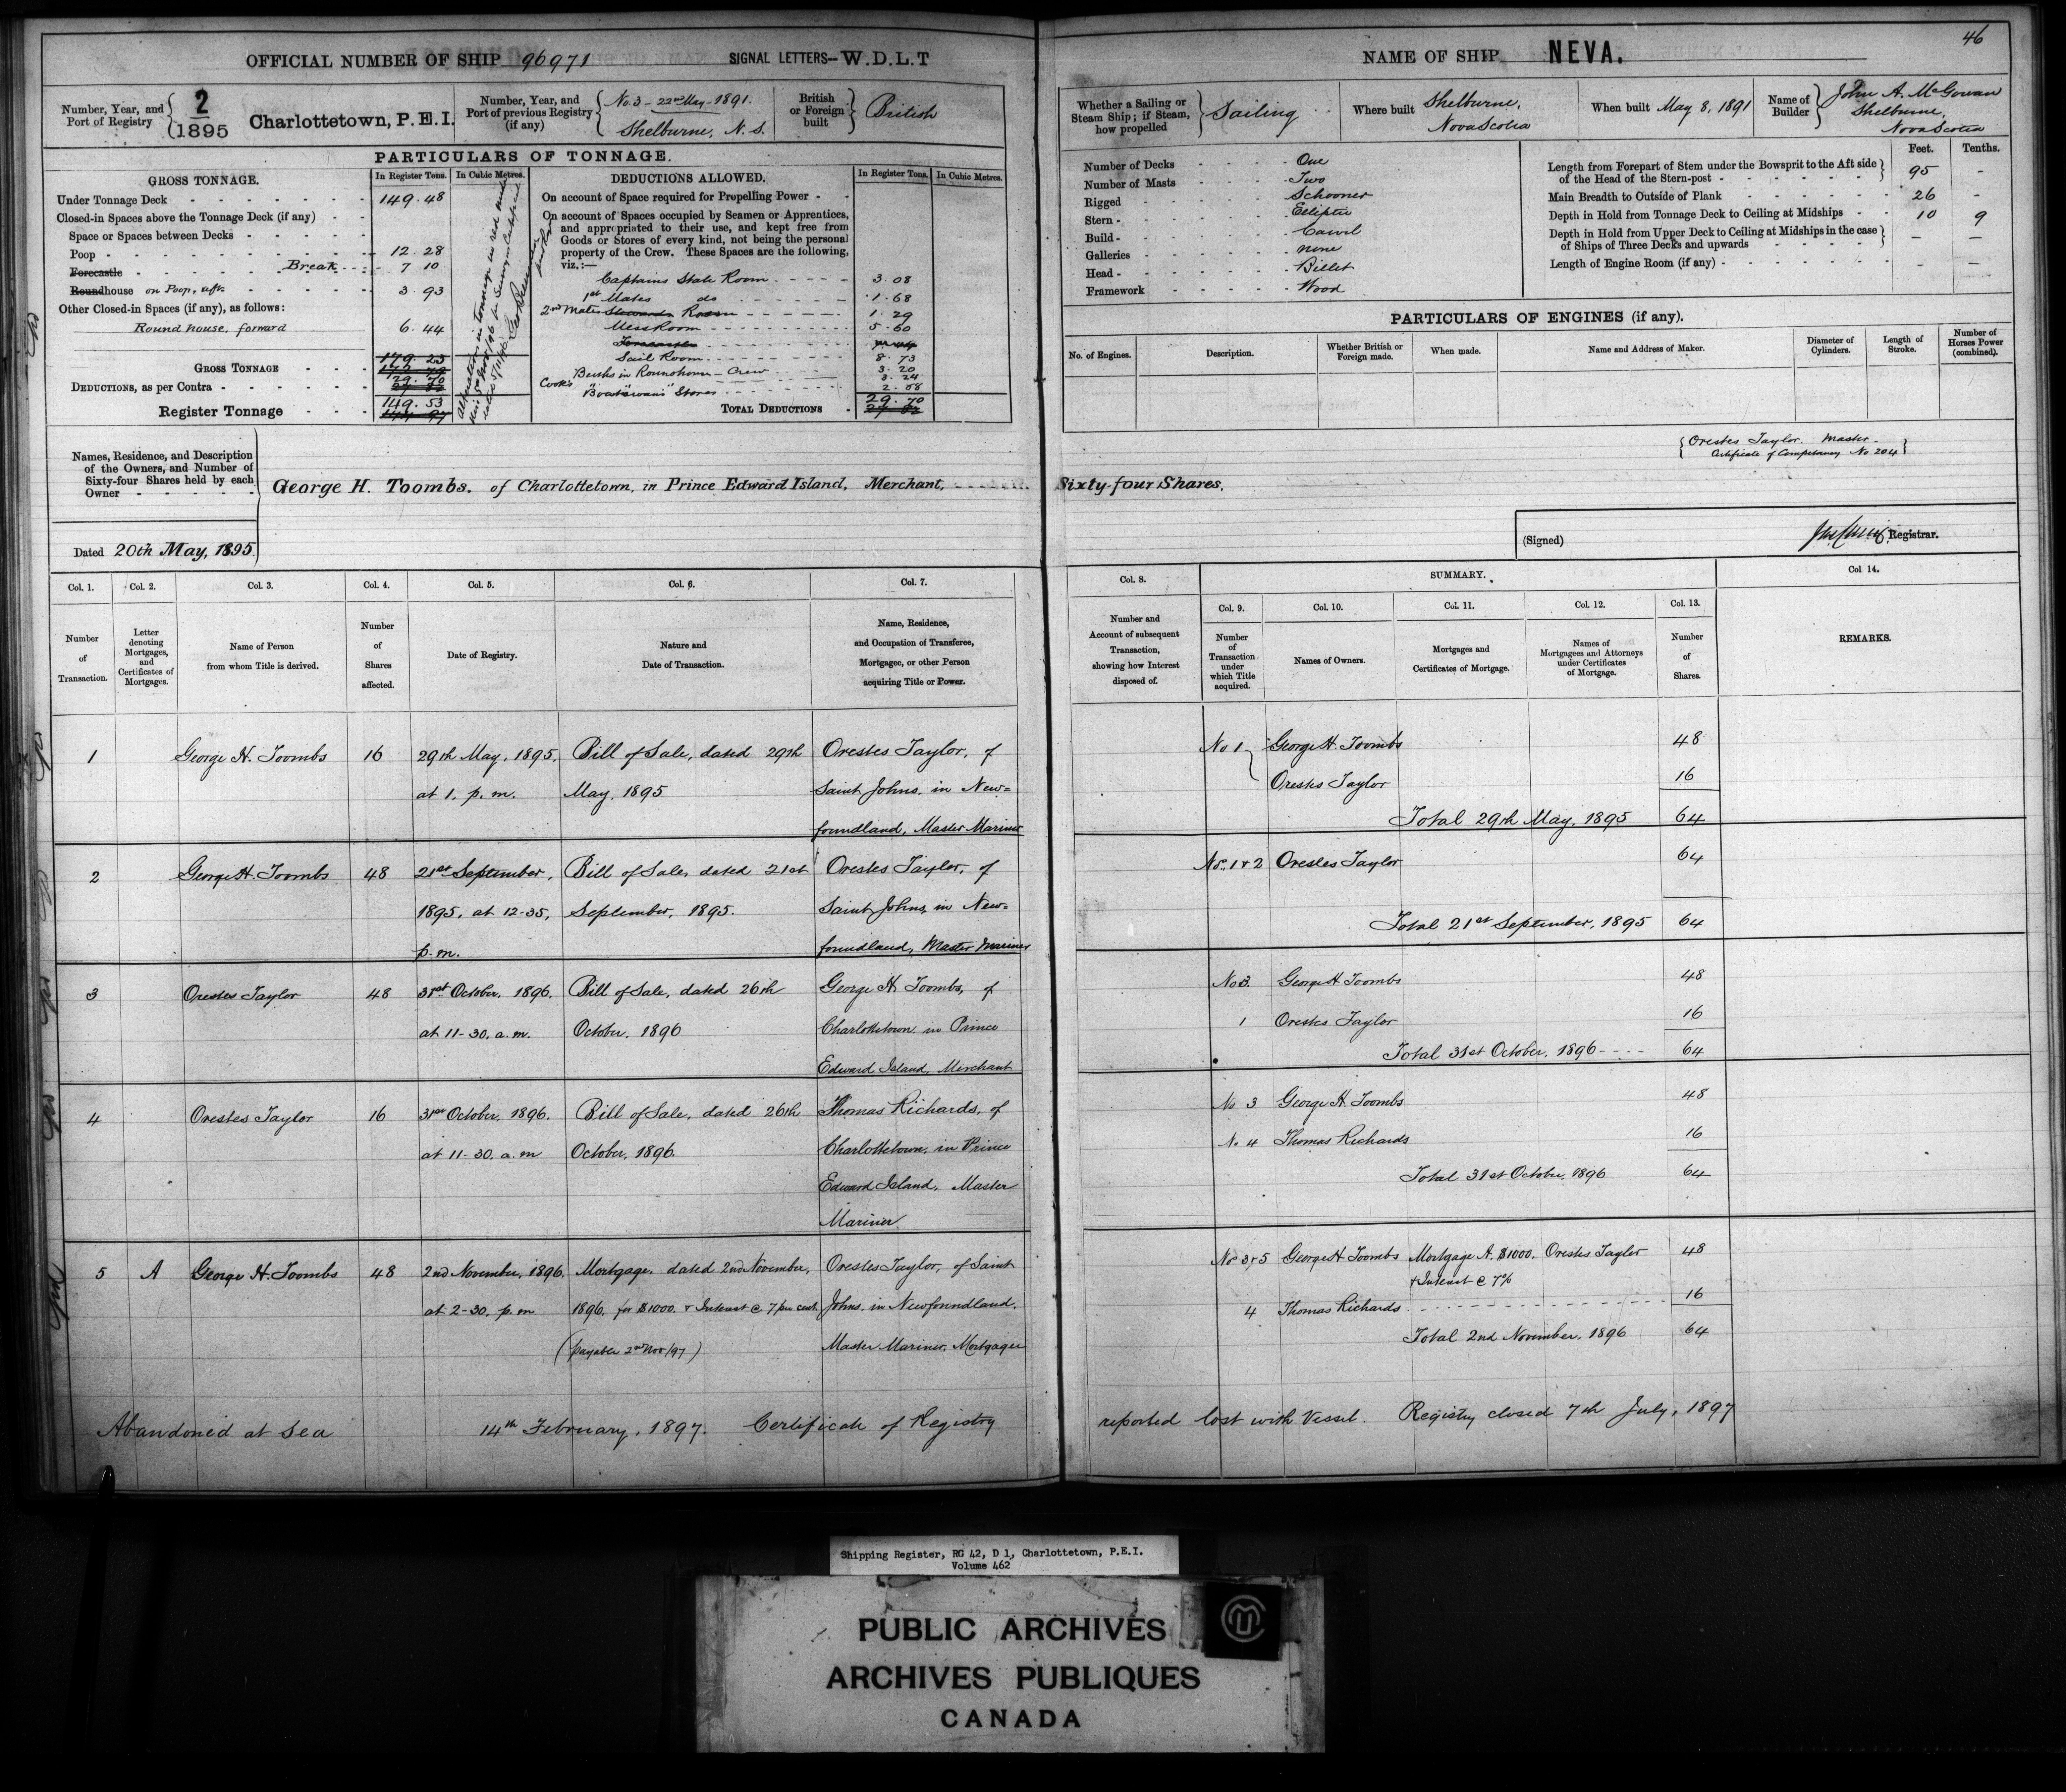 46
OFFICIAL NUMBER OF SHIP 96971 SIGNAL LETTERS—W.D.L.T
Number, Year, and Port of Registry 2/1895 Charlottetown, P.E.I.
Number, Year, and Port of previous Registry (if any) No. 3 - 22nd May - 1891. Shelburne, N. S.
British or Foreign built British
PARTICULARS OF TONNAGE.
GROSS TONNAGE. In Register Tons. In Cubic Metres.
Under Tonnage Deck 149.48
Closed-in Spaces above the Tonnage Deck (if any)
Space or Spaces between Decks
Poop 12.28
Forecastle Break 7 10
Roundhouse on Poop, aft. 3.93
Other Closed-in Spaces (if any), as follows:
Round house, forward 6.44
GROSS TONNAGE
DEDUCTIONS, as per Contra 29.70
Register Tonnage 149.53
DEDUCTIONS ALLOWED. In Register Tons. In Cubic Metres.
On account of Space required for Propelling Power
On account of Spaces occupied by Seamen or Apprentices,
and appropriated to their use, and kept free from
Goods or Stores of every kind, not being the personal
property of the Crew. These Spaces are the following,
viz.:—
Captains State Room 3.08
1st Mates do 1.68
2nd Mates Stewards Room 1.29
Mess Room 5.60
Forecastle
Sail Room 8.73
Berths in Roundhouse - Crew 3.20
Cook's " " 3.24
Boatswain's Stores 2.88
TOTAL DEDUCTIONS 29.70
Names, Residence, and Description
of the Owners, and Number of
Sixty-four Shares held by each
Owner
George H. Toombs, of Charlottetown, in Prince Edward Island, Merchant, Sixty-four Shares.
Dated 20th May, 1895.
NAME OF SHIP NEVA.
Whether a Sailing or Steam Ship; if Steam, how propelled Sailing
Where built Shelburne, Nova Scotia
When built May 8, 1891
Name of Builder John A. McGowan Shelburne, Nova Scotia
Number of Decks One
Number of Masts Two
Rigged Schooner
Stern Elliptic
Build Carvel
Galleries none
Head Billet
Framework Wood
Feet. Tenths.
Length from Forepart of Stem under the Bowsprit to the Aft side
of the Head of the Stern-post 95 -
Main Breadth to Outside of Plank 26 -
Depth in Hold from Tonnage Deck to Ceiling at Midships 10 9
Depth in Hold from Upper Deck to Ceiling at Midships in the case
of Ships of Three Decks and upwards — —
Length of Engine Room (if any) — —
PARTICULARS OF ENGINES (if any).
No. of Engines. Description. Whether British or Foreign made. When made. Name and Address of Maker. Diameter of Cylinders. Length of Stroke. Number of Horses Power (combined).
Orestes Taylor. Master.
Certificate of Competency No 204
(Signed) Registrar.
Col. 1. Col. 2. Col. 3. Col. 4. Col. 5. Col. 6. Col. 7.
Number of Transaction.
Letter denoting Mortgages, and Certificates of Mortgages.
Name of Person from whom Title is derived.
Number of Shares affected.
Date of Registry.
Nature and Date of Transaction.
Name, Residence, and Occupation of Transferee, Mortgagee, or other Person acquiring Title or Power.
Col. 8. SUMMARY. Col 14.
Col. 9. Col. 10. Col. 11. Col. 12. Col. 13.
Number and Account of subsequent Transaction, showing how Interest disposed of.
Number of Transaction under which Title acquired.
Names of Owners.
Mortgages and Certificates of Mortgage.
Names of Mortgagees and Attorneys under Certificates of Mortgage.
Number of Shares.
REMARKS.
1 George H. Toombs 16 29th May, 1895. Bill of Sale, dated 29th Orestes Taylor, of
at 1. p.m. May, 1895 Saint Johns, in New=
foundland, Master Mariner
No 1 George H. Toombs 48
Orestes Taylor 16
Total 29th May, 1895 64
2 George H. Toombs 48 21st September, Bill of Sale, dated 21st Orestes Taylor, of
1895, at 12-35, September, 1895. Saint Johns, in New=
p.m. foundland, Master Mariner
Nos. 1 & 2 Orestes Taylor 64
Total 21st September, 1895 64
3 Orestes Taylor 48 31st October, 1896. Bill of Sale, dated 26th George H Toombs, of
at 11-30. a.m. October, 1896 Charlottetown in Prince
Edward Island, Merchant
No 3. George H Toombs 48
1 Orestes Taylor 16
Total 31st October, 1896 64
4 Orestes Taylor 16 31st October, 1896. Bill of Sale, dated 26th Thomas Richards, of
at 11-30. a.m October, 1896. Charlottetown, in Prince
Edward Island, Master
Mariner
No 3 George H Toombs 48
No. 4 Thomas Richards 16
Total 31st October, 1896 64
5 A George H. Toombs 48 2nd November, 1896. Mortgage, dated 2nd November, Orestes Taylor, of Saint
at 2-30. p.m 1896, for $1000. & Interest @ 7 per cent. Johns, in Newfoundland,
(payable 2nd Nov/97) Master Mariner, Mortgagee
Nos 3 & 5 George H. Toombs Mortgage A. $1000. Orestes Taylor 48
& Interest @ 7%
4 Thomas Richards 16
Total 2nd November, 1896 64
Abandoned at Sea 14th February, 1897. Certificate of Registry reported lost with Vessel. Registry closed 7th July, 1897
Shipping Register, RG 42, D 1, Charlottetown, P.E.I.
Volume 462
PUBLIC ARCHIVES
ARCHIVES PUBLIQUES
CANADA